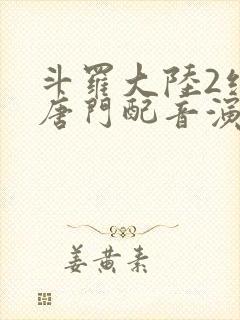 斗羅大陸2絕
唐門配音演
姜黃素